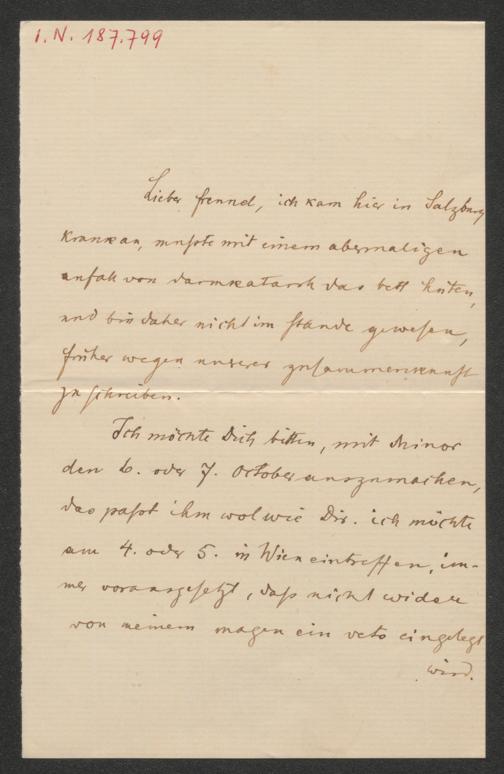 I.N. 187.799
Lieber freund, ich kam hier in Salzburg
krank an, muſste mit einem abermaligen
anfall von darmkatarrh das bett hüten,
und bin daher nicht im ſtande geweſen,
früher wegen unserer zuſammenkunft
zu ſchreiben.
Ich möchte Dich bitten, mit Minor
den 6. oder 7. October auszumachen,
das paſst ihm wol wie Dir. ich möchte
am 4. oder 5. in Wien eintreffen, im-
mer vorausgeſetzt, daſs nicht wider
von meinem magen ein veto eingelegt
wird.